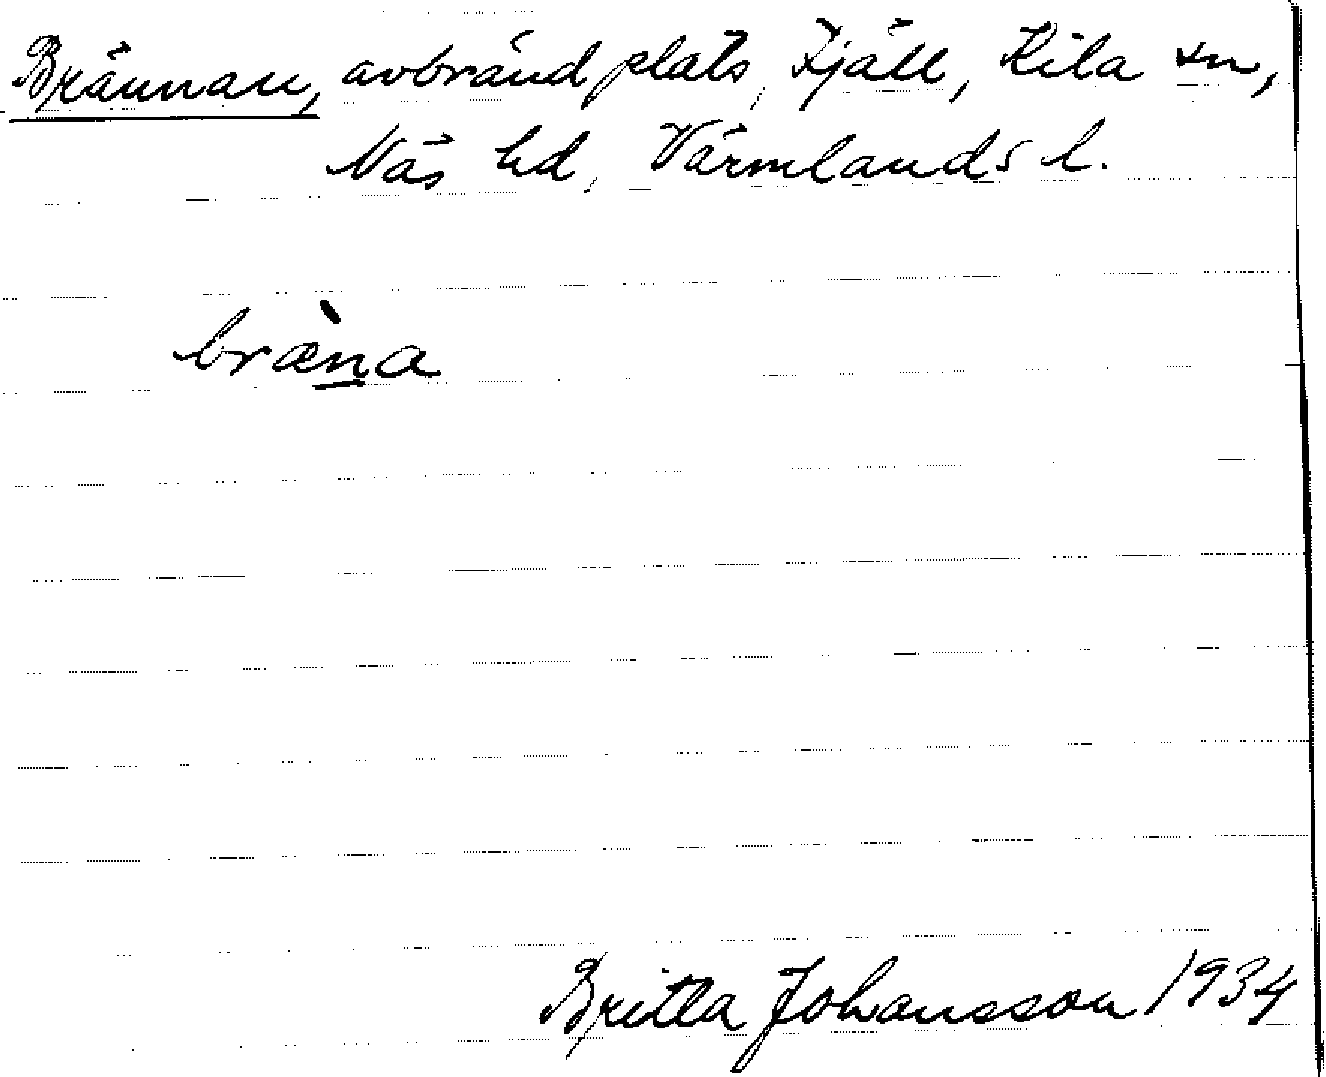 Brännan, avbränd plats, Fjäll, Kila sn,
Näs hd, Värmlands l.
bræ̀na
Britta Johansson 1934